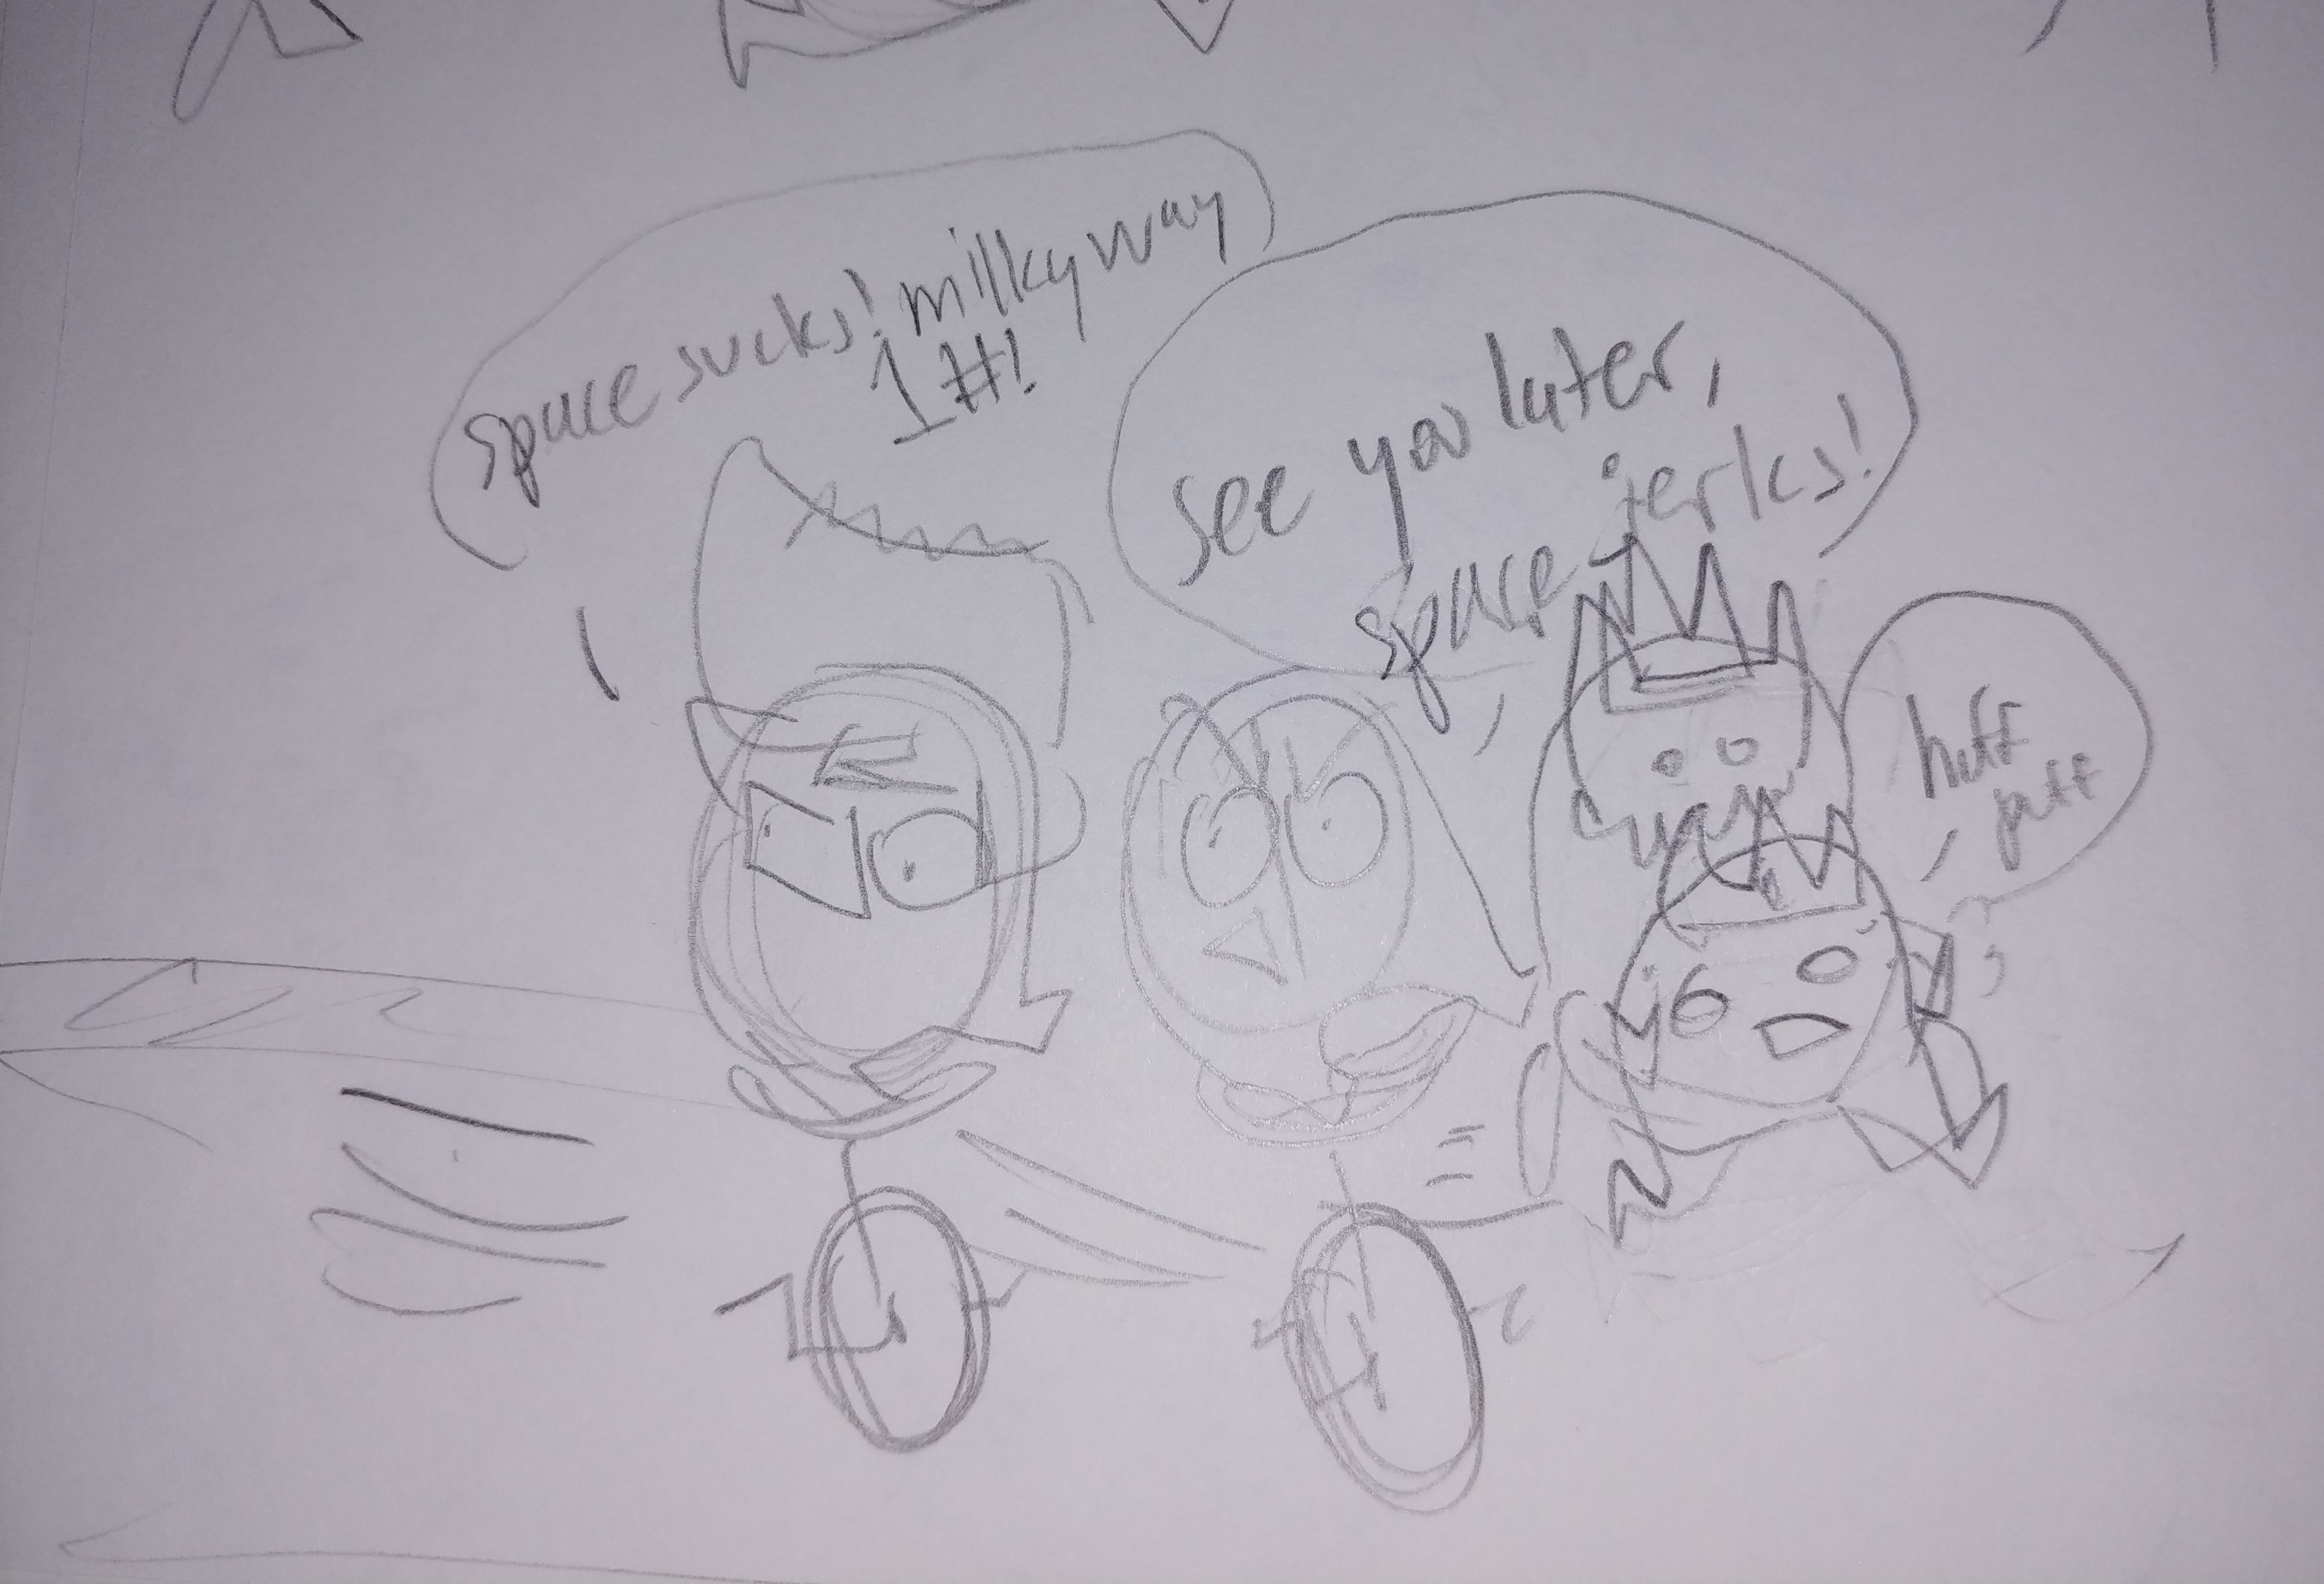 space sucks! milky way
1#!
see you later,
space jerks!
huff
puff